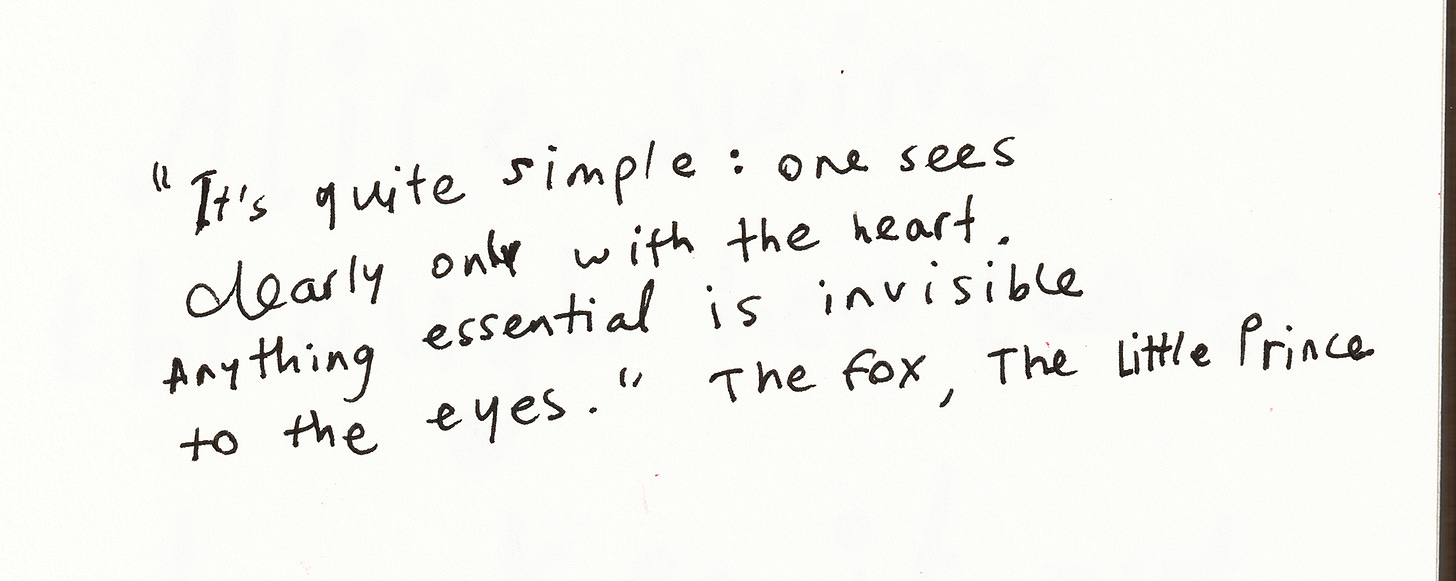 "It's quite simple: one sees
clearly only with the heart.
Anything essential is invisible
to the eyes." The Fox, The Little Prince